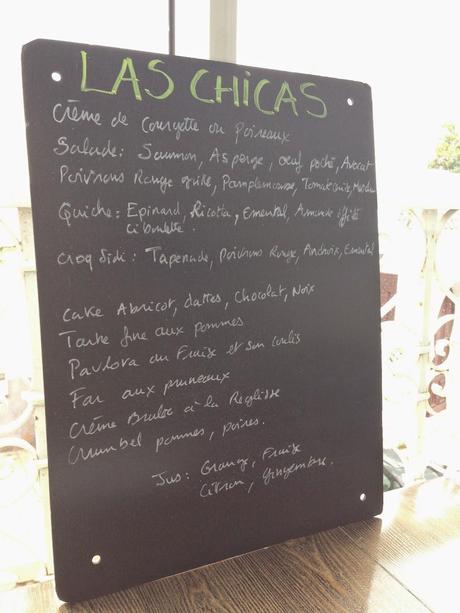 LAS CHICAS
Crème de Courgette ou Poireaux
Salade: Saumon, Asperge, oeuf poché, Avocat
Poivrons Rouge grillé, Pamplemousse, Tomate
Quiche: Epinard, Ricotta, Emental, Amande effilé
ciboulette.
Croq Sidi: Tapenade, Poivrons Rouge, Emental
Cake Abricot, dattes, Chocolat, Noix
Tarte fine aux pommes
Pavlova au Fraise et son coulis
Far aux pruneaux
Crème Brulee à la Reglisse
Crumbel pommes, poires.
Jus: Orange, Fraise
Citron, gingembre.